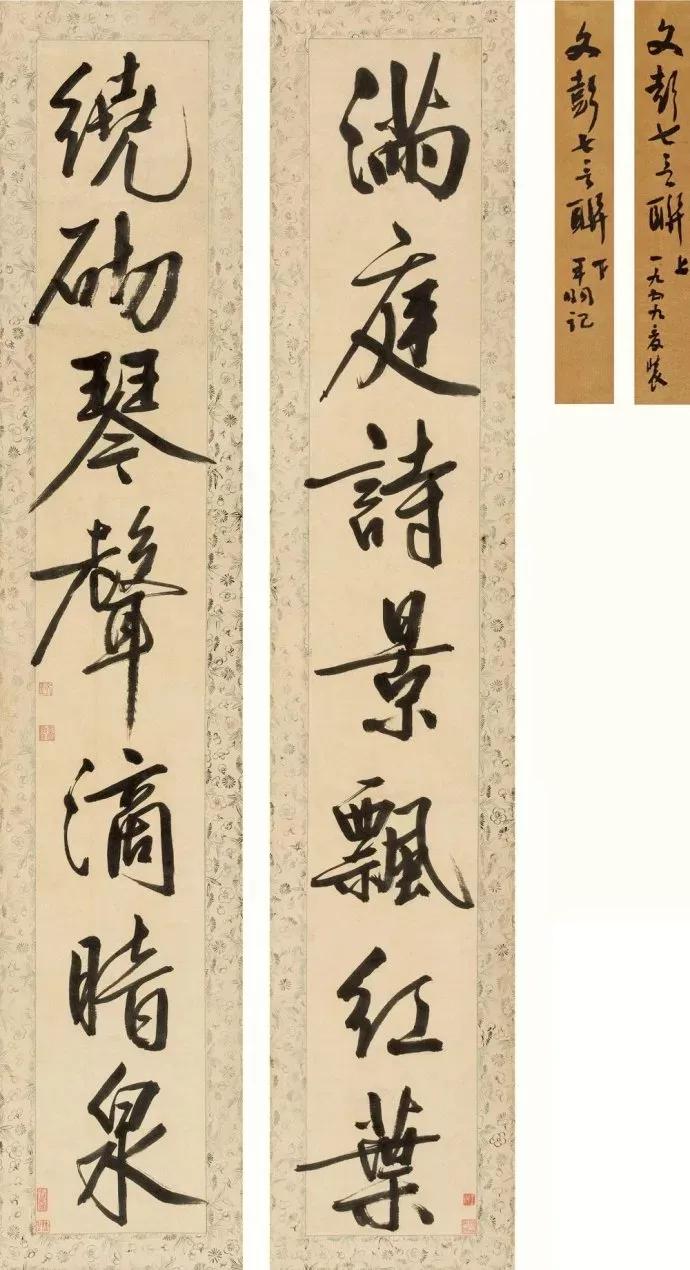 滿庭詩景飄紅葉
繞砌琴聲滴暗泉
文彭七言聯 上
一九五九年裝
文彭七言聯 下
平朙記